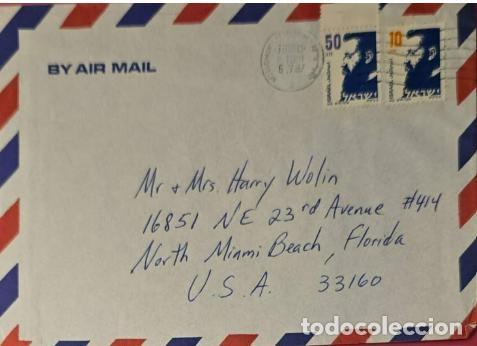 BY AIR MAIL
50
10
ישראל
ישראל
Mr + Mrs. Harry Wolin
16851 NE 23rd Avenue #414
North Miami Beach, Florida
U.S.A. 33160
todocoleccion